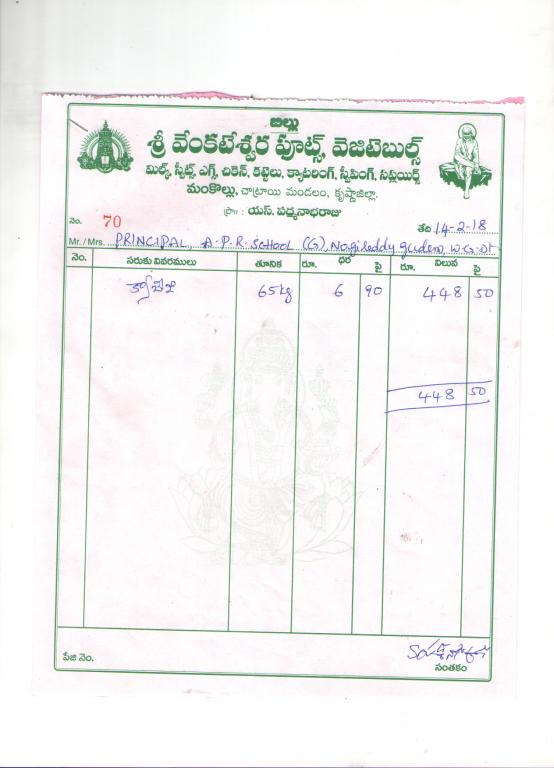 బిల్లు
శ్రీ వేంకటేశ్వర ఫ్రూట్స్, వెజిటెబుల్స్
మిల్క్, స్వీట్స్, ఎగ్స్, చికెన్, కట్టెలు, క్యాటరింగ్, స్వీపింగ్, సప్లయిర్స్
మంకొల్లు, చాట్రాయి మండలం, కృష్ణాజిల్లా.
ప్రొః : యస్. పద్మనాభరాజు
నెం. 70 తేది 14-2-18
Mr. / Mrs. PRINCIPAL, A.P.R. SCHOOL (G), Nagireddy gudem, W.G.Dt
నెం. సరుకు వివరములు తూనిక రూ. ధర పై రూ. విలువ పై
క్యాబేజి 65kg 6 90 448 50
448 50
పేజి నెం.
సంతకం